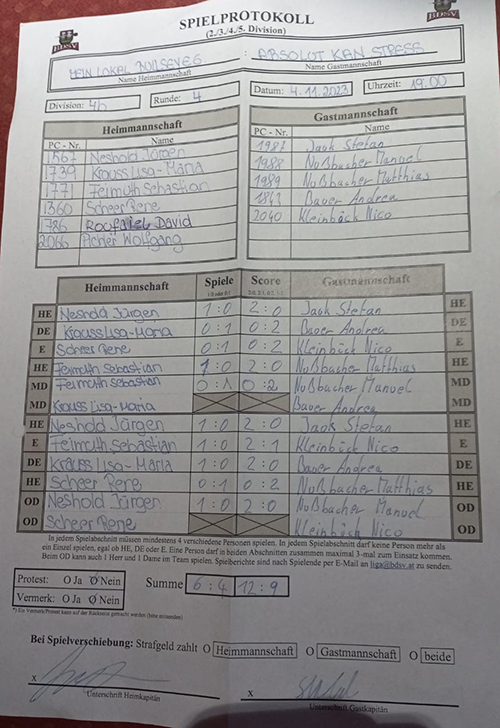 SPIELPROTOKOLL
(2./3./4./5. Division)
BDSV
BDSV
MEIN LOKAL BULLSEYE6 : ABSOLUT KAN STRESS
Name Heimmannschaft Name Gastmannschaft
Division: 4b Runde: 4 Datum: 4.11.2023 Uhrzeit: 19.00
Heimmannschaft Gastmannschaft
PC - Nr. Name PC - Nr. Name
1567 Neshold Jürgen 1987 Jack Stefan
1739 Krauss Lisa-Maria 1988 Nußbacher Manuel
1771 Feimuth Sebastian 1989 Nußbacher Matthias
1360 Scheer Rene 1843 Bauer Andrea
1786 David 2040 Kleinböck Nico
2066 Pichér Wolfgang
Heimmannschaft Spiele Score Gastmannschaft
HE Neshold Jürgen 1:0 2:0 Jack Stefan HE
DE Krauss Lisa-Maria 0:1 0:2 Bauer Andrea DE
E Scheer Rene 0:1 0:2 Kleinböck Nico E
HE Feimuth Sebastian 1:0 2:0 Nußbacher Matthias HE
MD Feimuth Sebastian 0:1 0:2 Nußbacher Manuel MD
MD Krauss Lisa-Maria Bauer Andrea MD
HE Neshold Jürgen 1:0 2:0 Jack Stefan HE
E Feimuth Sebastian 1:0 2:1 Kleinböck Nico E
DE Krauss Lisa-Maria 1:0 2:0 Bauer Andrea DE
HE Scheer Rene 0:1 0:2 Nußbacher Matthias HE
OD Neshold Jürgen 1:0 2:0 Nußbacher Manuel OD
OD Scheer Rene Kleinböck Nico OD
In jedem Spielabschnitt müssen mindestens 4 verschiedene Personen spielen. In jedem Spielabschnitt darf keine Person mehr als
ein Einzel spielen, egal ob HE, DE oder E. Eine Person darf in beiden Abschnitten zusammen maximal 3-mal zum Einsatz kommen.
Beim OD kann auch 1 Herr und 1 Dame im Team spielen. Spielberichte sind nach Spielende per E-Mail an liga@bdsv.at zu senden.
Protest: O Ja O Nein Summe 6:4 12:9
Vermerk: O Ja O Nein
*) Ein Vermerk/Protest kann auf der Rückseite gemacht werden (bitte ankreuzen)
Bei Spielverschiebung: Strafgeld zahlt O Heimmannschaft O Gastmannschaft O beide
x x
Unterschrift Heimkapitän Unterschrift Gastkapitän